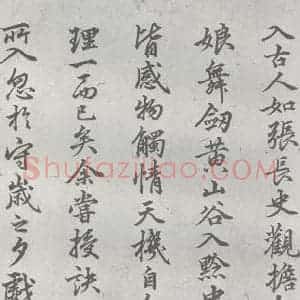 入古人如張長史觀擔
娘舞劒黄山谷入黔中
皆感物觸情天機自
理一而已矣余嘗授訣
所入忽於守歲之夕戲
Shufaziliao.COM